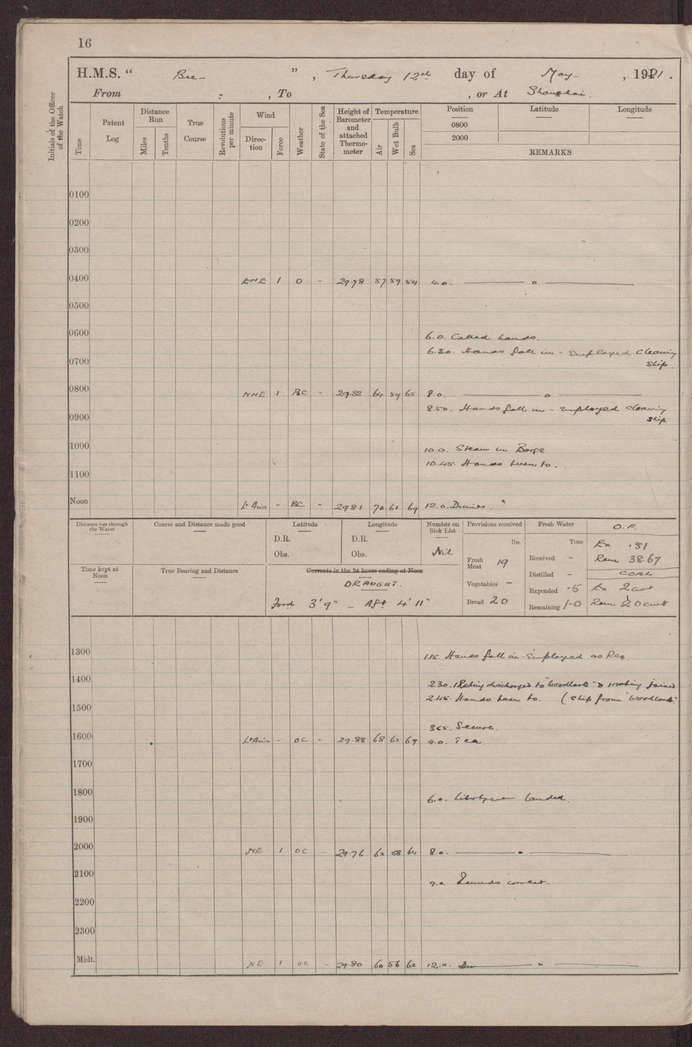 16
H.M.S. " Bee ", Thursday 12th day of May, 1921.
From : , To , or At Shanghai.
Initials of the Officer of the Watch
Time
Patent Log
Distance Run
Miles
Tenths
True Course
Revolutions per minute
Wind
Direction
Force
Weather
State of the Sea
Height of Barometer and attached Thermometer
Temperature
Air
Wet Bulb
Sea
Position
0800
2000
Latitude
Longitude
REMARKS
0100
0200
0300
0400 ENE 1 O - 29.78 57 54 4.0. "
0500
0600 6.0. Called hands.
6.30. Hands fall in - Employed cleaning ship.
0700
0800 NNE 1 BC - 29.82 64 59 8.0. "
8.50. Hands fell in - employed cleaning ship
0900
1000 10.0. Steam in Barge
10.45. Hands turn to.
1100
Noon Lt Airs - BC - 29.81 70 61 64 12.0. Dinner. "
Distance run through the Water
Course and Distance made good
Latitude
D.R.
Obs.
Longitude
D.R.
Obs.
Number on Sick List
Nil
Provisions received
lbs.
Fresh Meat 19
Vegetables -
Bread 20
Fresh Water
Tons
Received -
Distilled -
Expended .5
Remaining
O.F.
Ex .81
Rem 38.67
COAL
Ex 2 cwt
Rem cwt
Time kept at Noon
True Bearing and Distance
Currents in the 24 hours ending at Noon
DRAUGHT.
Ford 3' 9" - Aft 4' 11"
1300 1.15. Hands fall in Employed as Req
1400 2.30. 1 Rating discharged to "Woodlark" & 1 rating joined
2.45. Hands turn to. (ship from "Woodlark"
1500
3.45. Secure.
1600 Lt Airs - OC - 29.88 68 4.0. Tea
1700
1800 6.0. landed
1900
2000 NE 1 OC - 29.76 8.0. "
2100 9.0. Rounds correct.
2200
2300
Midt. NE 1 OC - 29.80 60 56 12.0. "